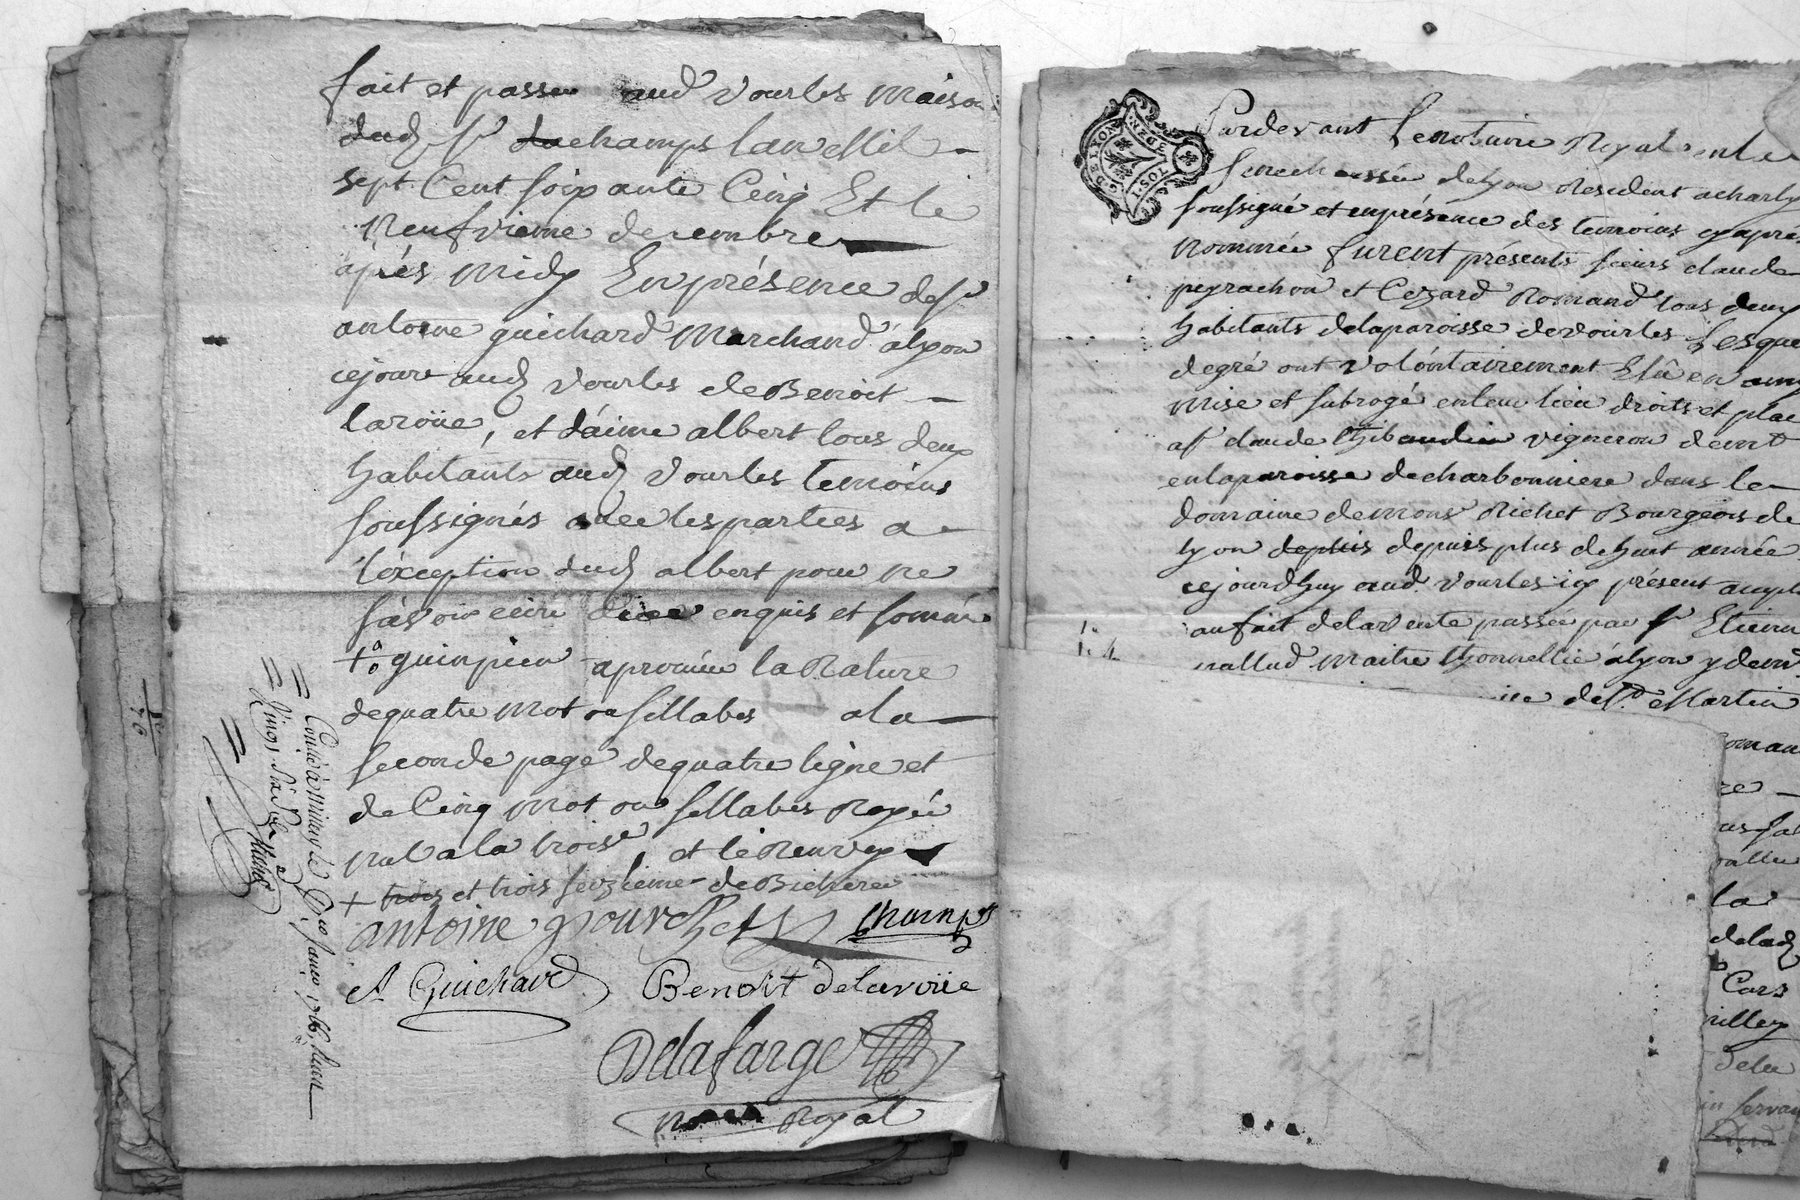 fait et passe aud Vourles maison
dud sr duchamps lan Mil
sept Cent soixante Cinq Et le
neufvieme decembre
aprés midy En présence de sr
antoine guichard Marchand à lyon
cejour aud Vourles de Benoit
laroüe, et d'aimé albert tous deux
habitants aud Vourles temoins
soussignés avec les parties a
l'exception dud albert pour ne
sàvoir ecire de ce enquis et sommé
aprouvée la Rature
de quatre mot ou sillabes a la
seconde page de quatre ligne et
de Cinq mot ou sillabes Rayé
nul a la trois e et le Renvoy
+ trois et trois seizieme de Bicherée
antoine Champs
A Guichard Benoit delaroüe
Delafarge
Royal
Conté à Millery le Janv 1766, Reçu
G. DE LYON
2 DEN.
1. SOL
Pardevant Le notaire Royal en la
senechaussée de lyon Resident a charly
soussigné et en présence des temoins cy aprés
nommée furent présents sieurs claude
peyrachon et Cezard Romand tous deux
habitants de la paroisse de vourles Lesque
de gré ont volontairement
mise et subrogé en leur lieu droits et plac
a sr claude thibaudier vigneron demt
en la paroisse de charbonniere dans le
domaine de mons Richet Bourgeois de
lyon deplus depuis plus de huit année
cejourdhuy aud. Vourles icy présent
au fait de la vente passée par sr Etienn
nallud maitre à lyon y demt
de St Martin
oman
re
us
la
delad
Cars
rilley
dela
in servan